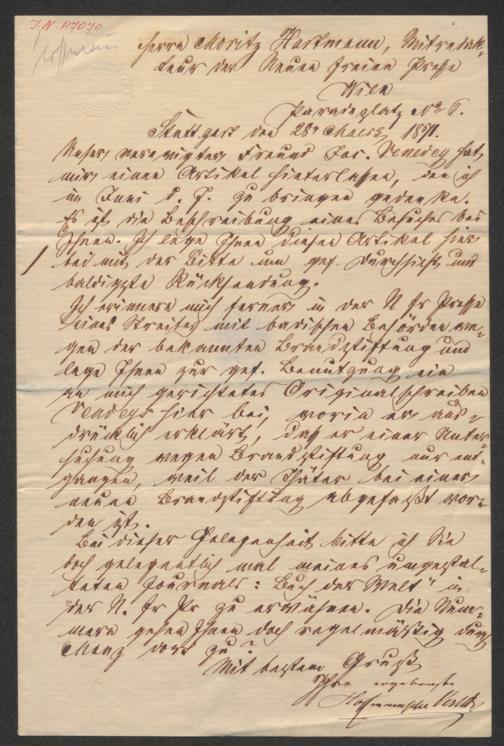 I.N. 47070
Herrn Moritz Hartmann, Mitredak-
teur der Neuen freien Presse
Wien
Paradeplatz No 6.
Stuttgart den 28n Maerz 1871.
Unser verewigter Freund Jac. Venedey hat
mir einen Artikel hinterlassen, den ich
im Juni d. J. zu bringen gedenke.
Es ist die Beschreibung eines Besuches bei
Ihnen. Ich lege Ihnen diesen Artikel hier
bei mit der Bitte um gef. Durchsicht und
baldigste Rücksendung.
Ich erinnere mich ferner in der N fr Presse
eines Streites mit badischen Behörden we-
gen der bekannten Brandstiftung und
lege Ihnen zur gef. Benutzung ein
an mich gerichtetes Originalschreiben
Venedeys hier bei, worin er aus-
drücklich erklärt, daß er einer Unter-
suchung wegen Brandstiftung nur ent-
gangen, weil der Thäter bei einer
neuen Brandstiftung abgefaßt wor-
den ist.
Bei dieser Gelegenheit bitte ich Sie
doch gelegentlich mal meines umgestal-
teten Journals: "Buch der Welt" in
der N. fr Pr zu erwähnen. Die Num-
mern gehen Ihnen doch regelmäßig durch
dort zu?
Mit bestem Gruß
Ihr ergebenster